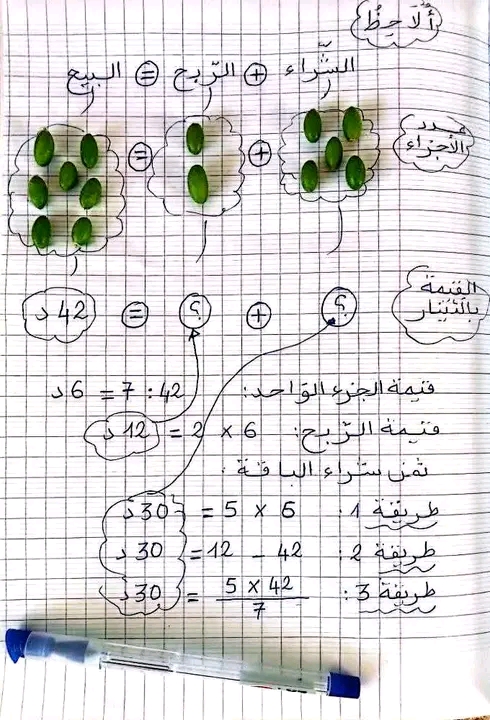 أُلَاحِظُ
الشّراء + الرّبح = البيع
عدد الأجزاء + =
القيمة بالدّينار
؟ + ؟ = 42 د
قيمة الجزء الواحد: 42 : 7 = 6 د
قيمة الرّبح: 6 × 2 = 12 د
ثمن شراء الباقة:
طريقة 1: 6 × 5 = 30 د
طريقة 2: 42 - 12 = 30 د
طريقة 3: 5 × 42 / 7 = 30 د